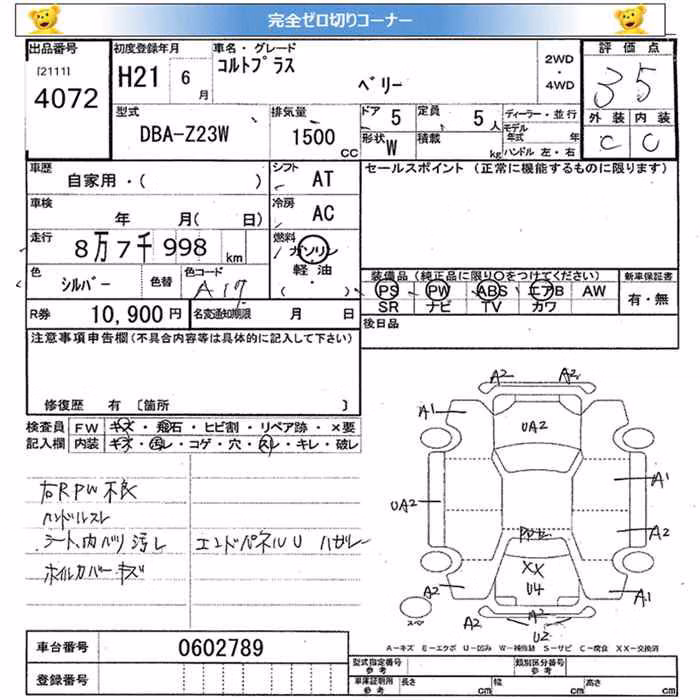 完全ゼロ切りコーナー
出品番号 初度登録年月 車名・グレード 2WD・4WD 評価点
[2111] 4072 H21 6月 コルトプラス ベリー 3 5
型式 DBA-Z23W 排気量 1500 CC ドア 5 定員 5人 ディーラー・並行 外装 内装
形状 W 積載 kg モデル年式 年 C C
ハンドル 左・右
車歴 自家用・( ) シフト AT セールスポイント (正常に機能するものに限ります)
車検 年 月( 日) 冷房 AC
走行 8万7千998 km 燃料 ガソリン 軽油 ( ・ )
色 シルバー 色替 色コード A17 装備品 (純正品に限り〇をつけてください) 新車保証書
PS PW ABS エアB AW 有・無
SR ナビ TV カワ
R券 10,900円 名変通知期限 月 日 後日品
注意事項申告欄(不具合内容等は具体的に記入して下さい)
修復歴 有 〔箇所 〕
検査員 FW キズ・飛石・ヒビ割・リペア跡・×要
記入欄 内装 キズ・汚レ・コゲ・穴・スレ・キレ・破レ
右RPW不良
ハンドルスレ
シート、内バリ汚レ エンドパネルU ハガレ
ホイルカバーキズ
A2 A2
A1
UA2
A1
UA2
A2
XX
U4
A2 A1
スペア A2 A2
U2
A-キズ E-エクボ U-凹ミ W-補修跡 S-サビ C-腐食 XX-交換済
車台番号 0602789
登録番号
型式指定番号 参考 類別区分番号 参考
車庫証明用 参考 長さ cm 幅 cm 高さ cm